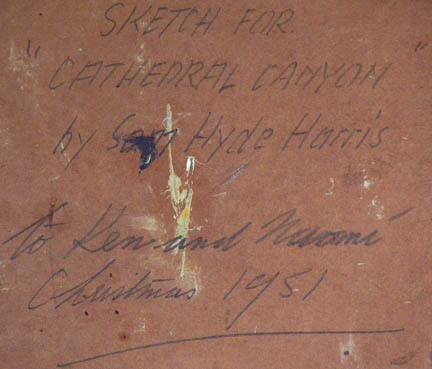 SKETCH FOR
"CATHEDRAL CANYON"
by Sam Hyde Harris
to Ken and Naomi
Christmas 1951